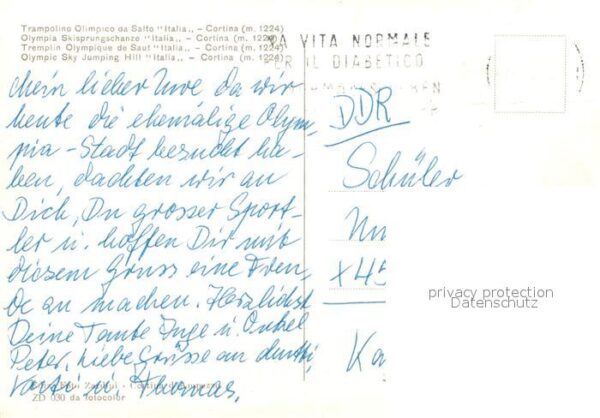 Trampolino Olimpico da Salto "Italia„ – Cortina (m. 1224)
Olympia Skisprungschanze "Italia„ – Cortina (m. 1224)
Tremplin Olympique de Saut "Italia„ – Cortina (m. 1224)
Olympic Sky Jumping Hill "Italia„ – Cortina (m. 1224)
VITA NORMALE
IL DIABETICO
Mein lieber Uwe da wir
heute die ehemalige Olym-
pia-Stadt besucht ha-
ben, dachten wir an
Dich, Du grosser Sport-
ler u. hoffen Dir mit
diesem Gruss eine Freu-
de an machen. Herzlichst
Deine Tante Inge u. Onkel
Peter. Liebe Grüsse an Mutti,
Vati u. Thomas.
DDR
Schüler
X45
Ka
privacy protection
Datenschutz
ZD 030 da fotocolor